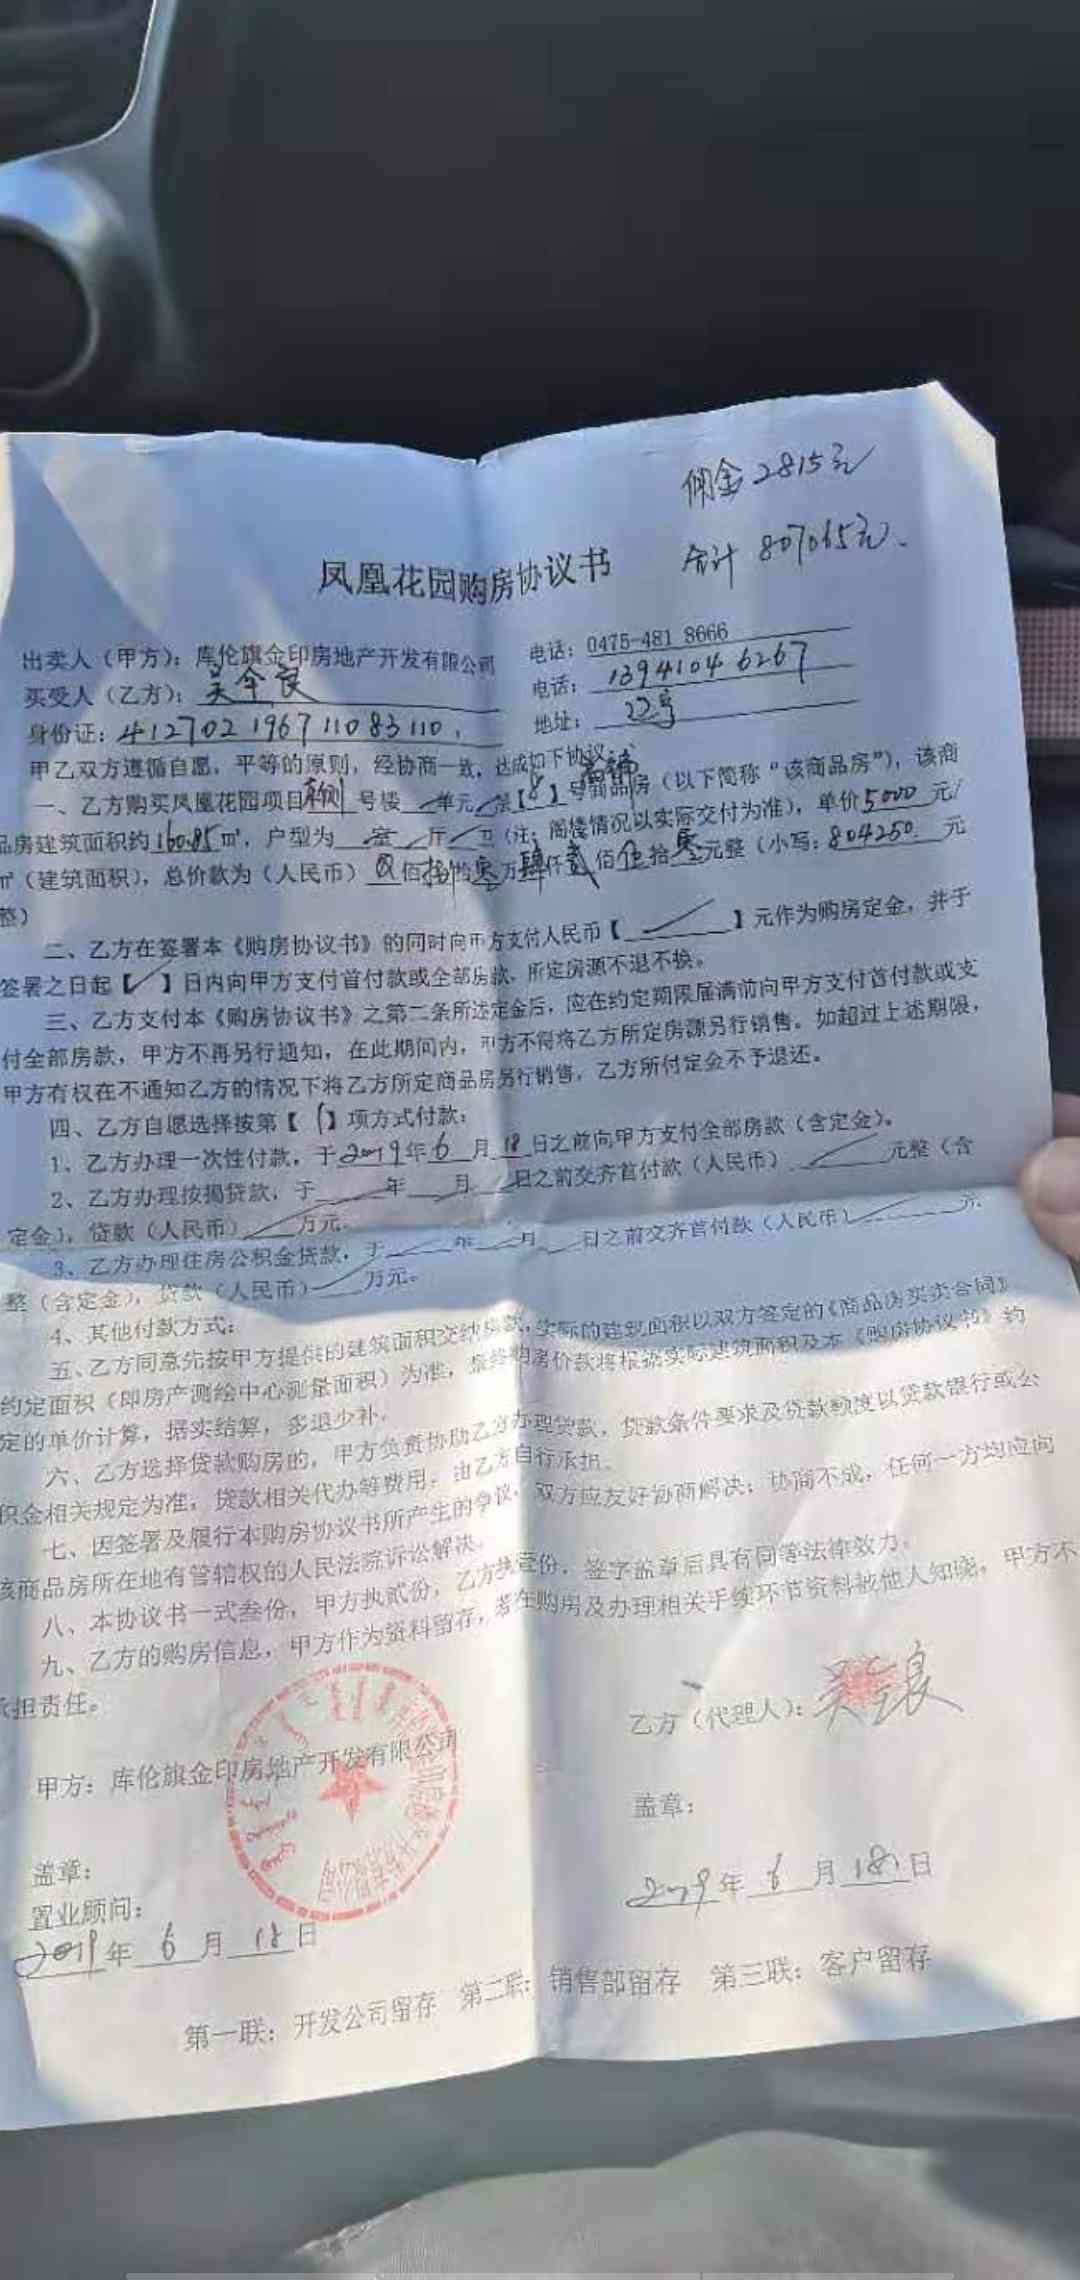 佣金2815元
合计 807065元.
凤凰花园购房协议书
出卖人（甲方）：库伦旗金印房地产开发有限公司 电话：0475-481 8666
买受人（乙方）：吴全良 电话：13941046267
身份证：412702196711083110 地址：22号
甲乙双方遵循自愿，平等的原则，经协商一致，达成如下协议：
一、乙方购买凤凰花园项目 号楼 单元 第【8】号商铺商品房（以下简称“该商品房”），该商
品房建筑面积约160.85㎡，户型为 室 厅 卫（注：阁楼情况以实际交付为准），单价5000元/
㎡（建筑面积），总价款为（人民币） 佰捌拾零万肆仟贰佰伍拾零元整（小写：804250 元
整）
二、乙方在签署本《购房协议书》的同时向甲方支付人民币【 】元作为购房定金，并于
签署之日起【 】日内向甲方支付首付款或全部房款，所定房源不退不换。
三、乙方支付本《购房协议书》之第二条所述定金后，应在约定期限届满前向甲方支付首付款或支
付全部房款，甲方不再另行通知，在此期间内，甲方不得将乙方所定房源另行销售。如超过上述期限，
甲方有权在不通知乙方的情况下将乙方所定商品房另行销售，乙方所付定金不予退还。
四、乙方自愿选择按第【1】项方式付款：
1、乙方办理一次性付款，于2019年6月18日之前向甲方支付全部房款（含定金）。
2、乙方办理按揭贷款，于 年 月 日之前交齐首付款（人民币） 元整（含
定金），贷款（人民币） 万元。
3、乙方办理住房公积金贷款，于 年 月 日之前交齐首付款（人民币） 元
整（含定金），贷款（人民币） 万元。
4、其他付款方式：
五、乙方同意先按甲方提供的建筑面积交纳房款，实际的建筑面积以双方签定的《商品房买卖合同》
约定面积（即房产测绘中心测量面积）为准，最终购房价款将根据实际建筑面积及本《购房协议书》约
定的单价计算，据实结算，多退少补。
六、乙方选择贷款购房的，甲方负责协助乙方办理贷款，贷款条件要求及贷款额度以贷款银行或公
积金相关规定为准，贷款相关代办等费用，由乙方自行承担。
七、因签署及履行本购房协议书所产生的争议，双方应友好协商解决；协商不成，任何一方均应向
该商品房所在地有管辖权的人民法院诉讼解决。
八、本协议书一式叁份，甲方执贰份，乙方执壹份，签字盖章后具有同等法律效力。
九、乙方的购房信息，甲方作为资料留存，若在购房及办理相关手续环节资料被他人知晓，甲方不
承担责任。
甲方：库伦旗金印房地产开发有限公司 乙方（代理人）：吴全良
盖章： 盖章：
置业顾问：
2019年6月18日 2019年6月18日
第一联：开发公司留存 第二联：销售部留存 第三联：客户留存